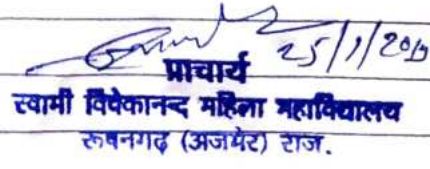 25/1/2019
प्राचार्य
स्वामी विवेकानन्द महिला महाविद्यालय
रूपनगढ़ (अजमेर) राज.